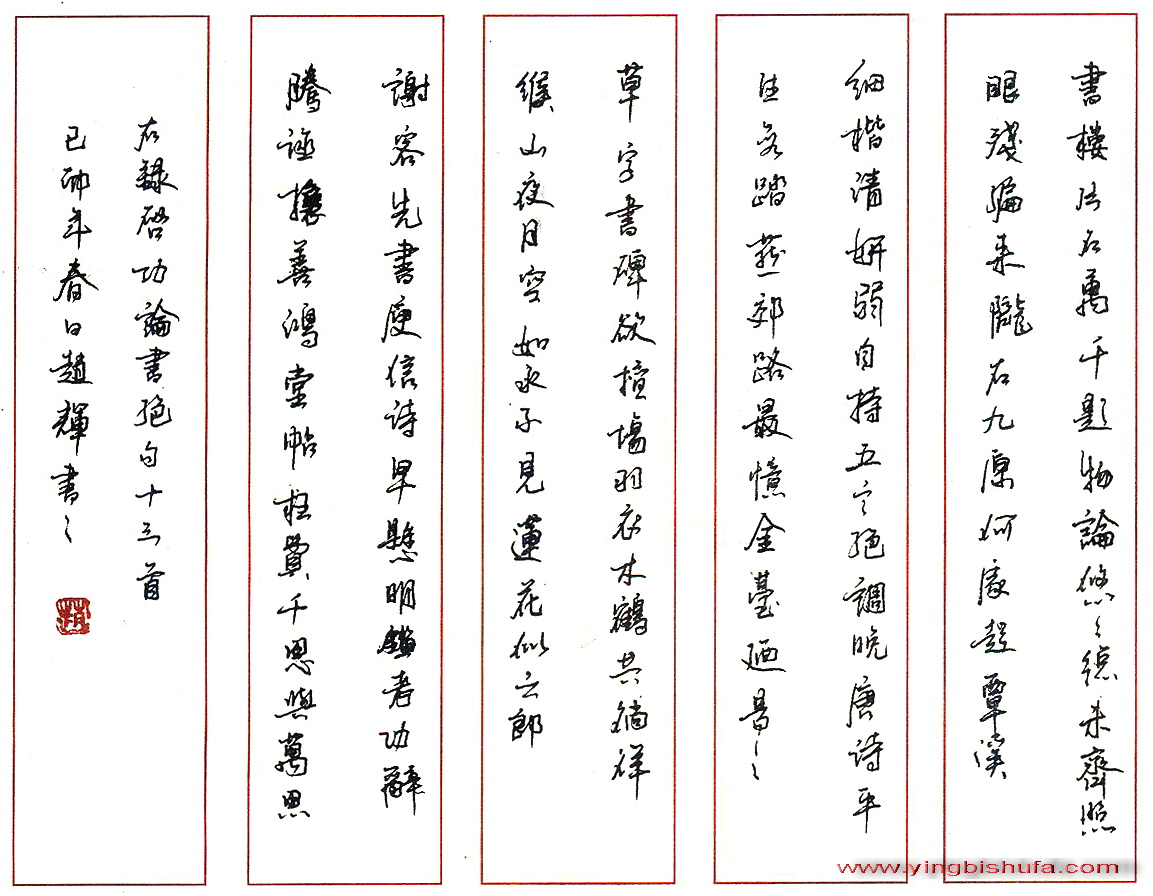 書樓片石萬千題物論悠〻總未齊照
眼殘編來隴右九原何處起覃溪
細楷清妍弱自持五言絕調晚唐詩平
生每踏燕郊路最憶金臺廼易之
草字書碑欲擅場羽衣木鶴共徜徉
緱山夜月空如水不見蓮花似六郎
謝客先書庾信詩早懸明鑑考功辭
騰誣攘善鴻堂帖枉費千思與萬思
右錄啓功論書絕句十三首
己卯年春日趙輝書之
趙
www.yingbishufa.com